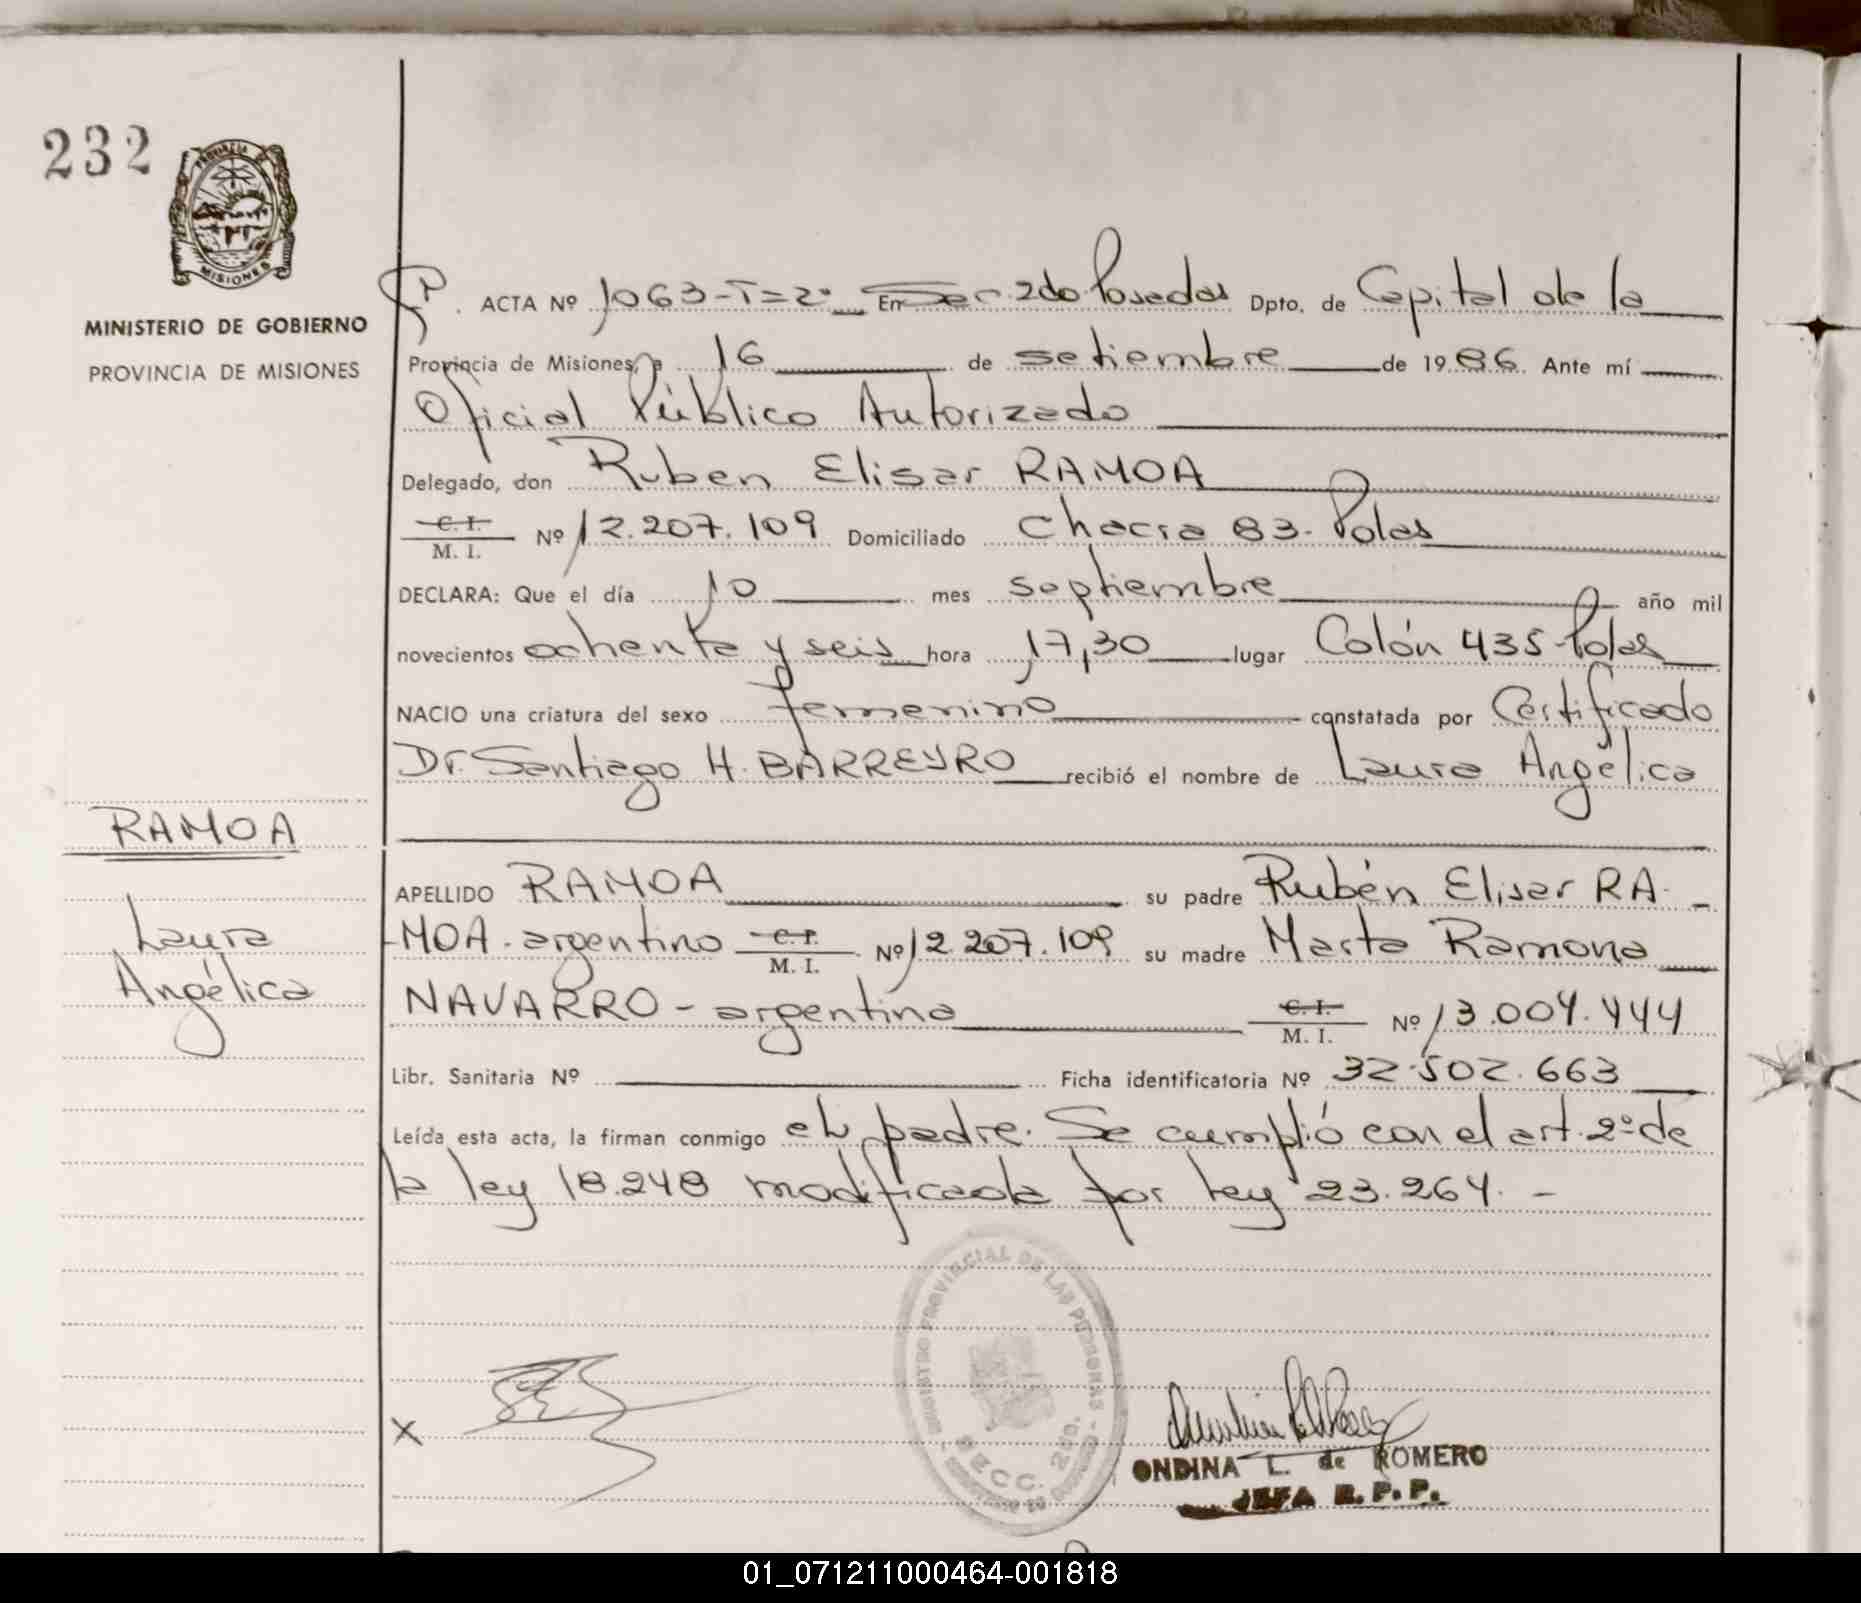 232
PROVINCIA DE
MISIONES
MINISTERIO DE GOBIERNO
PROVINCIA DE MISIONES
ACTA Nº 1063-T=2º En Sec. 2do Posadas Dpto. de Capital de la
Provincia de Misiones, a 16 de setiembre de 1986. Ante mí
Oficial Público Autorizado
Delegado, don Ruben Elisar RAMOA
C. I.
M. I. Nº 12.207.109 Domiciliado Chacra 83- Pdas
DECLARA: Que el día 10 mes septiembre año mil
novecientos ochenta y seis hora 17,30 lugar Colón 435-Pdas
NACIO una criatura del sexo femenino constatada por Certificado
Dr. Santiago H. BARREYRO recibió el nombre de Laura Angélica
RAMOA
Laura
Angélica
APELLIDO RAMOA su padre Rubén Elisar RA-
-MOA-argentino C. I. M. I. Nº 12.207.109 su madre Marta Ramona
NAVARRO - argentina C. I. M. I. Nº 13.004.444
Libr. Sanitaria Nº Ficha identificatoria Nº 32.502.663
Leída esta acta, la firman conmigo el padre. Se cumplió con el art. 2º de
la ley 18.248 modificada por ley 23.264. -
REGISTRO PROVINCIAL DE LAS PERSONAS
SECC. 2da.
X
ONDINA L. de ROMERO
JEFA R. P. P.
01_071211000464-001818